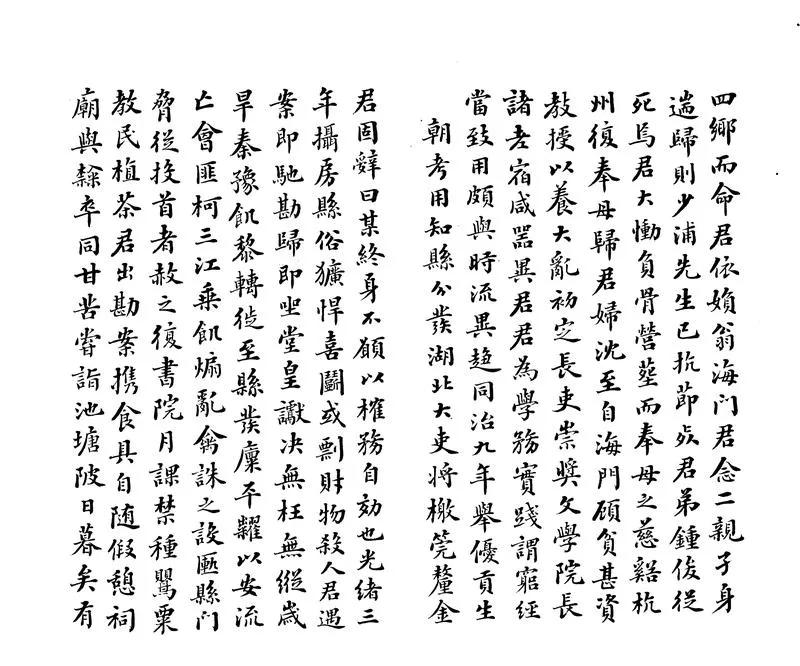 四鄉而命君依嬪翁海門君念二親孑身
遄歸則少浦先生已抗節歿君弟鍾俊從
死焉君大慟負骨營葬而奉母之慈谿杭
州復奉母歸君婦沈至自海門顧貧甚資
教授以養大亂初定長吏崇獎文學院長
諸老宿咸器異君君為學務實踐謂窮經
當致用頗與時流異趋同治九年舉優貢生
朝考用知縣分發湖北大吏將檄筦釐金
君固辭曰某終身不願以榷務自効也光緒三
年攝房縣俗獷悍喜鬭或剽財物殺人君遇
案即馳勘歸即坐堂皇讞决無枉無縱歲
旱秦豫飢黎轉徙至縣發廩平糶以安流
亡會匪柯三江乘飢煽亂禽誅之設匭縣門
脅從投首者赦之復書院月課禁種罌粟
教民植茶君出勘案携食具自随假憩祠
廟與隸卒同甘苦嘗詣池塘陂日暮矣有